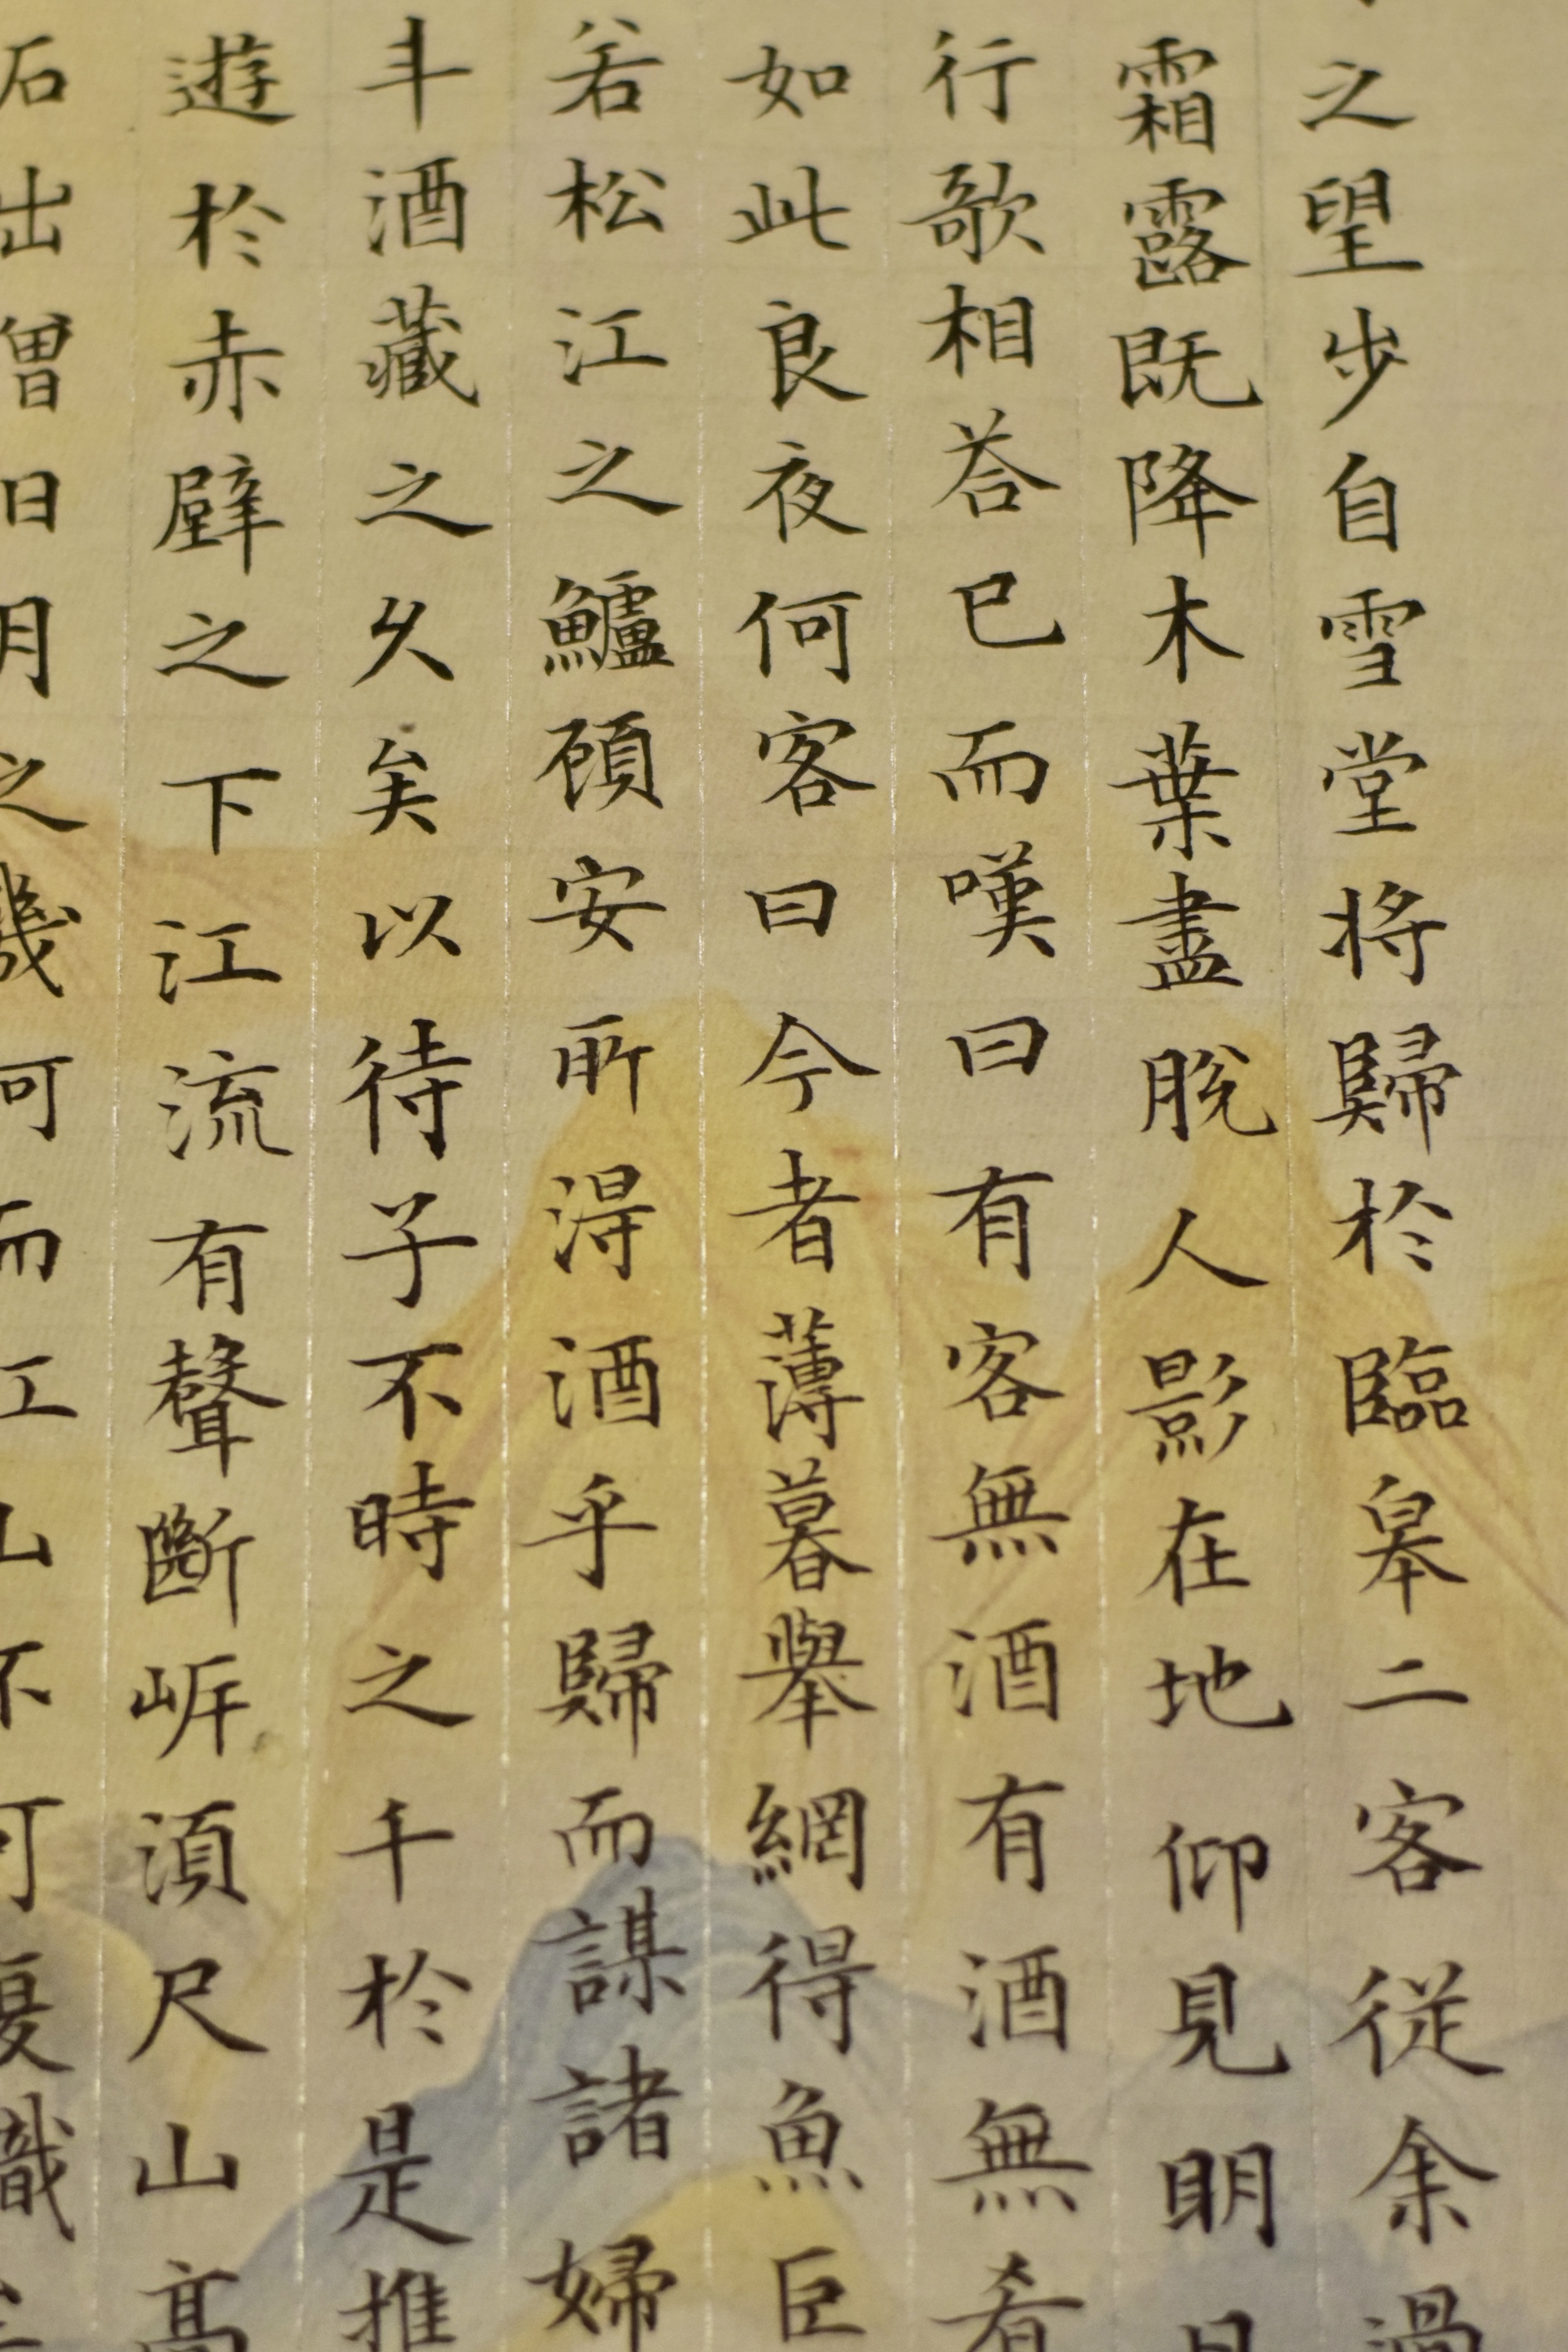 之望步自雪堂将歸於臨皋二客從余過
霜露既降木葉盡脫人影在地仰見明月
行歌相荅已而嘆曰有客無酒有酒無肴
如此良夜何客曰今者薄暮舉網得魚巨
若松江之鱸顧安所得酒乎歸而謀諸婦
斗酒藏之久矣以待子不時之千於是推
遊於赤壁之下江流有聲斷岸湏尺山高
石出曾日月之幾何而江山不可復識